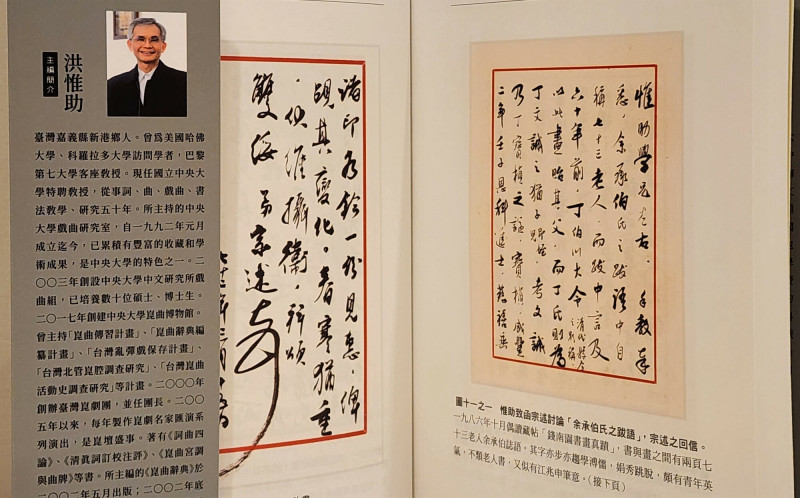 洪惟助
主編簡介
臺灣嘉義縣新港鄉人。曾爲美國哈佛
大學、科羅拉多大學訪問學者，巴黎
第七大學客座教授。現任國立中央大
學特聘教授，從事詞、曲、戲曲、書
法教學、研究五十年。所主持的中央
大學戲曲研究室，自一九九二年元月
成立迄今，已累積有豐富的收藏和學
術成果，是中央大學的特色之一。二
〇〇三年創設中央大學中文研究所戲
曲組，已培養數十位碩士、博士生。
二〇一七年創建中央大學崑曲博物館。
曾主持「崑曲傳習計畫」、「崑曲辭典編
纂計畫」、「台灣亂彈戲保存計畫」、
「台灣北管崑腔調查研究」、「台灣崑曲
活動史調查研究」等計畫。二〇〇〇年
創辦臺灣崑劇團，並任團長。二〇〇
五年以來，每年製作崑劇名家匯演系
列演出，是崑壇盛事。著有《詞曲四
論》、《清眞詞訂校注評》、《崑曲宮調
與曲牌》等書。所主編的《崑曲辭典》於
二〇〇二年五月出版；二〇〇二年底
諸印 鈐一 見惠，俾
覘其變化。春寒猶重
，伏維攝衛，祗頌
雙綏 弟宗述
惟助學兄左右 手教奉
悉，余承伯氏之跋語中自
稱七十三老人，而跋中言及
六十年前，丁伯川大令
以此畫貽其父，而丁氏則為
丁文誠之猶子 考文誠
乃丁寶楨之謚，寶楨，咸豐
二年壬子恩科進士，
圖十一之一　惟助致函宗述討論「余承伯氏之跋語」，宗述之回信。
一九八六年十月偶讀藏帖「錢南園書畫真蹟」，書與畫之間有兩頁七
十三老人余承伯誌語。其字亦步亦趨學溥儒，娟秀跳脫，頗有青年英
氣，不類老人書，又似有江兆申筆意。（接下頁）